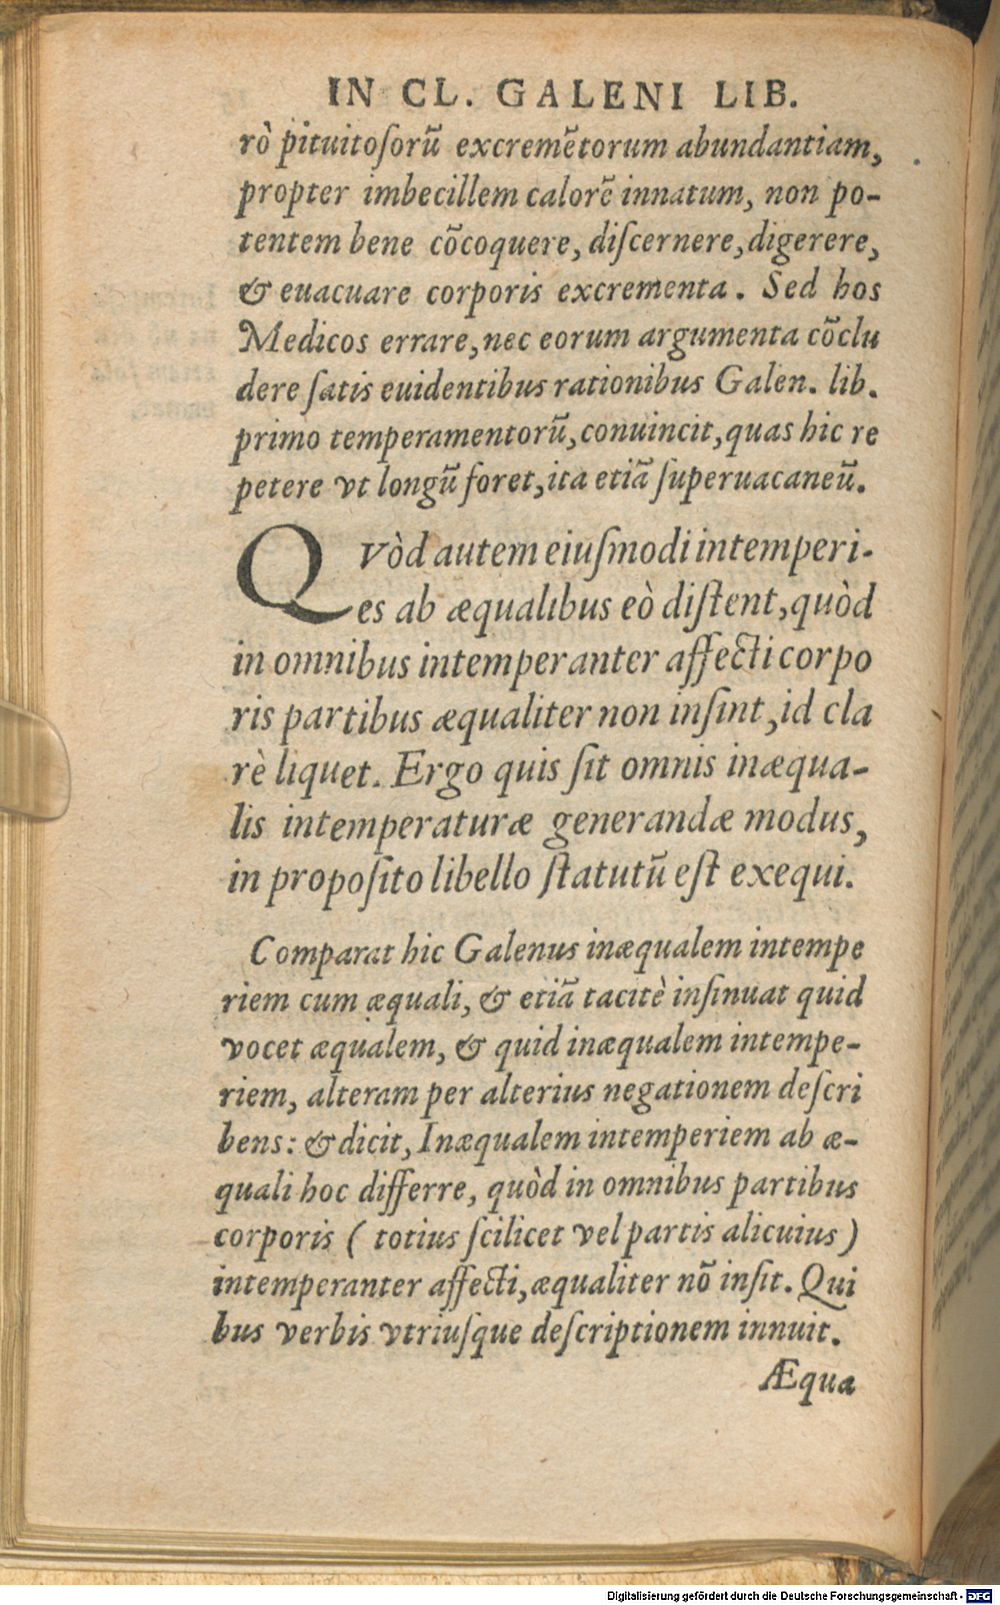 IN CL. GALENI LIB.
rò pituitoſorū excremētorum abundantiam,
propter imbecillem calorē innatum, non po-
tentem bene cōcoquere, diſcernere, digerere,
& euacuare corporis excrementa. Sed hos
Medicos errare, nec eorum argumenta cōclu
dere ſatis euidentibus rationibus Galen. lib.
primo temperamentorū, conuincit, quas hic re
petere vt longū foret, ita etiā ſuperuacaneū.
QVòd autem eiuſmodi intemperi-
es ab æqualibus eò diſtent, quòd
in omnibus intemperanter affecti corpo
ris partibus æqualiter non inſint, id cla
rè liquet. Ergo quis ſit omnis inæqua-
lis intemperaturæ generandæ modus,
in propoſito libello ſtatutū eſt exequi.
Comparat hic Galenus inæqualem intempe
riem cum æquali, & etiā tacitè inſinuat quid
vocet æqualem, & quid inæqualem intempe-
riem, alteram per alterius negationem deſcri
bens: & dicit, Inæqualem intemperiem ab æ-
quali hoc differre, quòd in omnibus partibus
corporis ( totius ſcilicet vel partis alicuius )
intemperanter affecti, æqualiter nō inſit. Qui
bus verbis vtriuſque deſcriptionem innuit.
Æqua
Digitalisierung gefördert durch die Deutsche Forschungsgemeinschaft - DFG